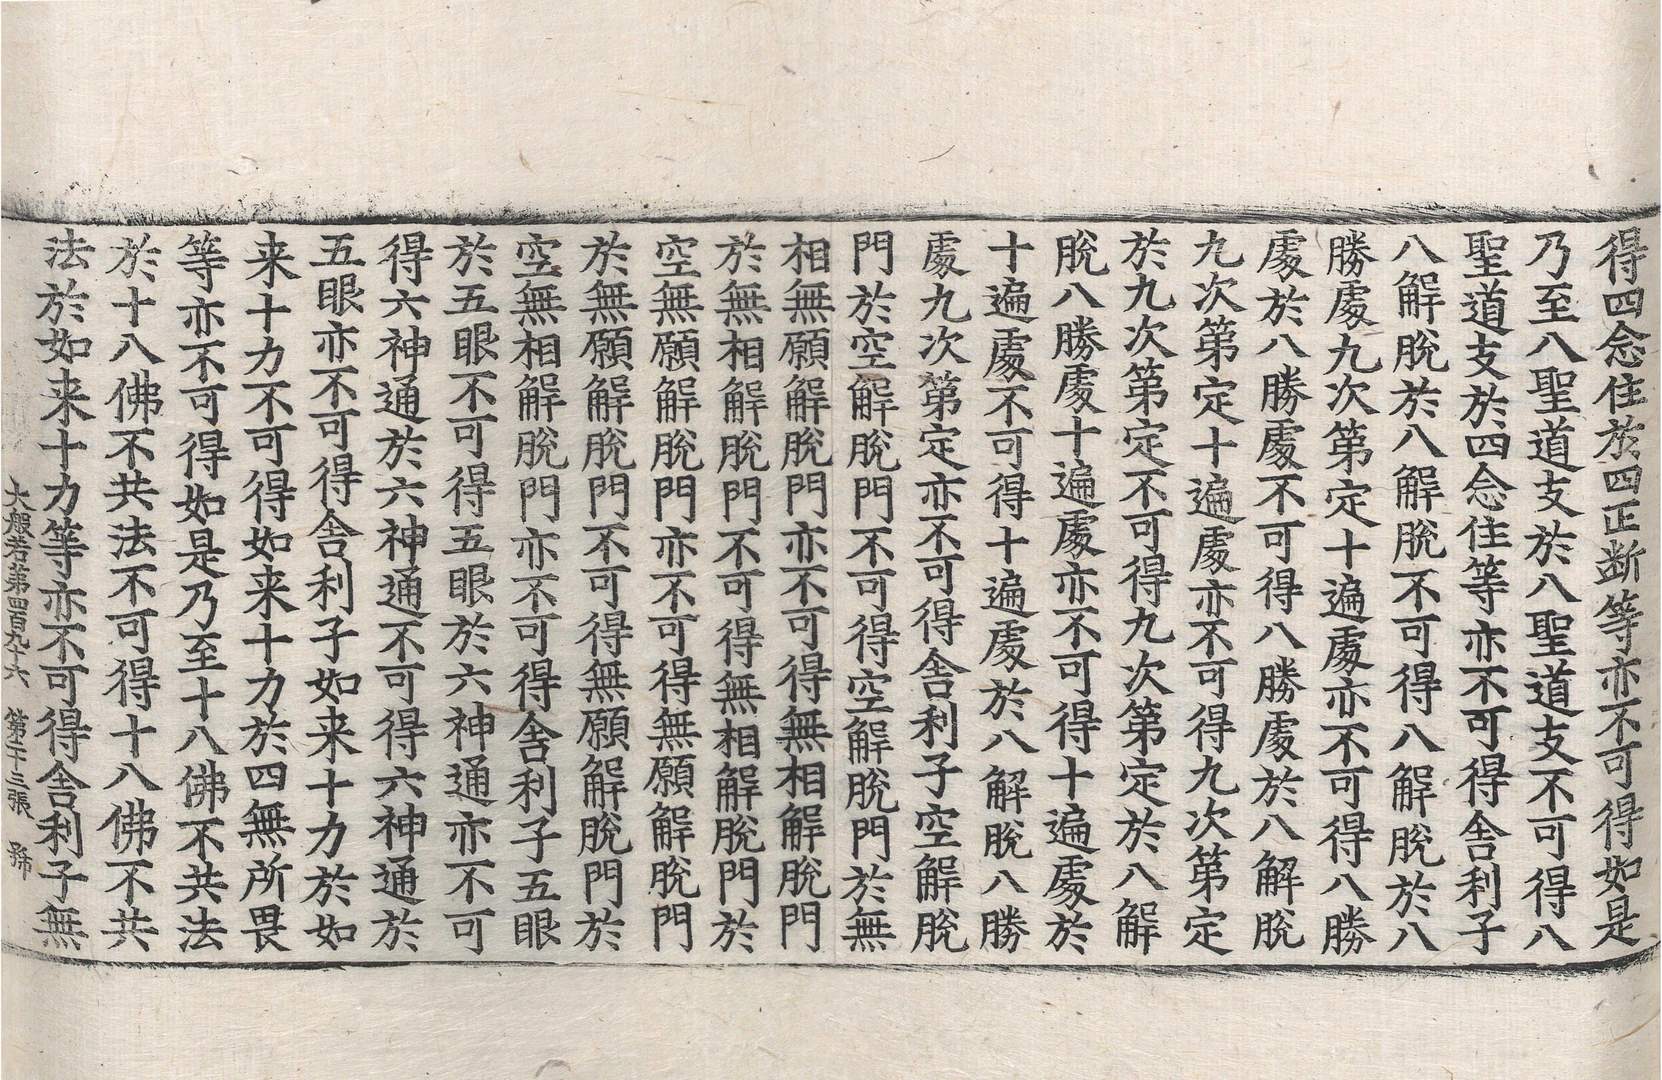 得四念住於四正断等亦不可得如是
乃至八聖道支於八聖道支不可得八
聖道支於四念住等亦不可得舍利子
八解脫於八解脫不可得八解脫於八
勝處九次第定十遍處亦不可得八勝
處於八勝處不可得八勝處於八解脫
九次第定十遍處亦不可得九次第定
於九次第定不可得九次第定於八解
脫八勝處十遍處亦不可得十遍處於
十遍處不可得十遍處於八解脫八勝
處九次第定亦不可得舍利子空解脫
門於空解脫門不可得空解脫門於無
相無願解脫門亦不可得無相解脫門
於無相解脫門不可得無相解脫門於
空無願解脫門亦不可得無願解脫門
於無願解脫門不可得無願解脫門於
空無相解脫門亦不可得舍利子五眼
於五眼不可得五眼於六神通亦不可
得六神通於六神通不可得六神通於
五眼亦不可得舍利子如来十力於如
来十力不可得如来十力於四無所畏
等亦不可得如是乃至十八佛不共法
於十八佛不共法不可得十八佛不共
法於如来十力等亦不可得舍利子無
大般若第四百九十六 第十三張 號